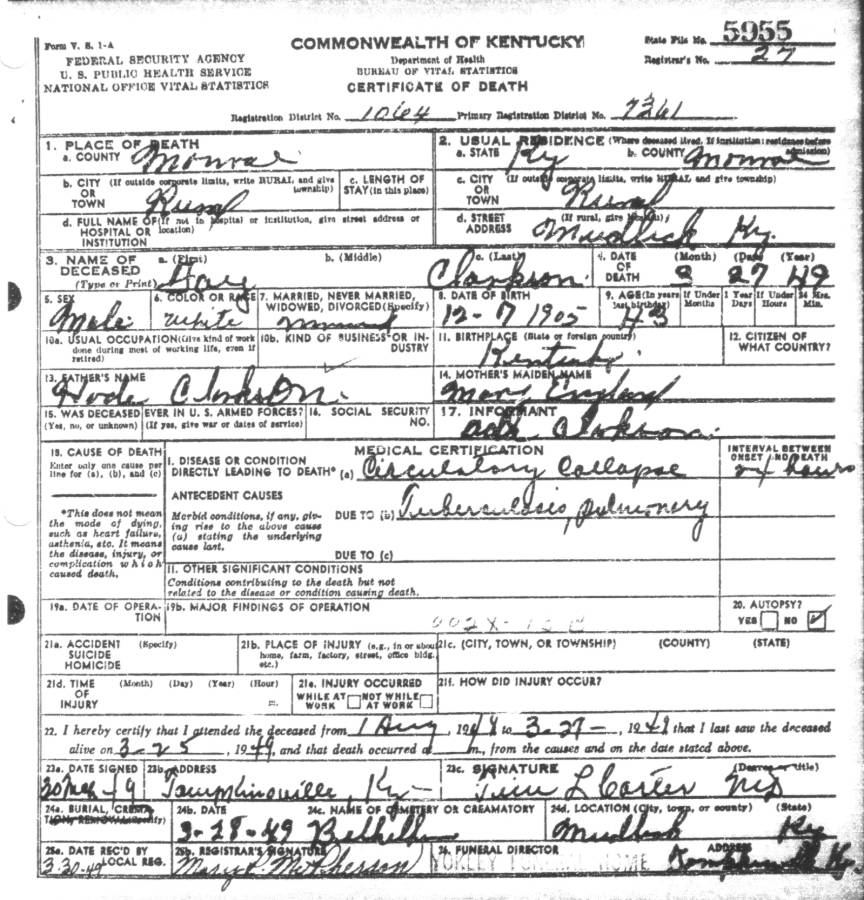 5955
Form V. S. 1-A
COMMONWEALTH OF KENTUCKY
State File No.
FEDERAL SECURITY AGENCY
Department of Health
Registrar's No. 27
U. S. PUBLIC HEALTH SERVICE
BUREAU OF VITAL STATISTICS
NATIONAL OFFICE VITAL STATISTICS
CERTIFICATE OF DEATH
Registration District No. 1064 Primary Registration District No. 7361
1. PLACE OF DEATH
a. COUNTY Monroe
2. USUAL RESIDENCE (Where deceased lived. If institution: residence before admission)
a. STATE Ky b. COUNTY Monroe
b. CITY (If outside corporate limits, write RURAL and give township)
OR
TOWN Rural
c. LENGTH OF STAY (in this place)
c. CITY (If outside corporate limits, write RURAL and give township)
OR
TOWN Rural
d. FULL NAME OF (If not in hospital or institution, give street address or location)
HOSPITAL OR
INSTITUTION
d. STREET (If rural, give location)
ADDRESS Mudlick Ky.
3. NAME OF DECEASED
(Type or Print)
a. (First)
b. (Middle)
c. (Last) Clarkson
4. DATE OF DEATH
(Month) (Day) (Year)
3 27 49
5. SEX
Male
6. COLOR OR RACE
White
7. MARRIED, NEVER MARRIED, WIDOWED, DIVORCED (Specify)
8. DATE OF BIRTH
12-7 1905
9. AGE (In years last birthday)
43
If Under 1 Year
Months Days
If Under 24 Hrs.
Hours Min.
10a. USUAL OCCUPATION (Give kind of work done during most of working life, even if retired)
10b. KIND OF BUSINESS OR INDUSTRY
11. BIRTHPLACE (State or foreign country)
Kentucky
12. CITIZEN OF WHAT COUNTRY?
13. FATHER'S NAME
Clarkson
14. MOTHER'S MAIDEN NAME
Mary England
15. WAS DECEASED EVER IN U. S. ARMED FORCES?
(Yes, no, or unknown) (If yes, give war or dates of service)
16. SOCIAL SECURITY NO.
17. INFORMANT
Clarkson
18. CAUSE OF DEATH
Enter only one cause per line for (a), (b), and (c)
MEDICAL CERTIFICATION
INTERVAL BETWEEN ONSET AND DEATH
I. DISEASE OR CONDITION
DIRECTLY LEADING TO DEATH* (a) Circulatory Collapse 24 hours
ANTECEDENT CAUSES
*This does not mean the mode of dying, such as heart failure, asthenia, etc. It means the disease, injury, or complication which caused death.
Morbid conditions, if any, giving rise to the above cause (a) stating the underlying cause last.
DUE TO (b) Tuberculosis, pulmonary
DUE TO (c)
II. OTHER SIGNIFICANT CONDITIONS
Conditions contributing to the death but not related to the disease or condition causing death.
19a. DATE OF OPERATION
19b. MAJOR FINDINGS OF OPERATION
20. AUTOPSY?
YES NO
21a. ACCIDENT (Specify)
SUICIDE
HOMICIDE
21b. PLACE OF INJURY (e.g., in or about home, farm, factory, street, office bldg. etc.)
21c. (CITY, TOWN, OR TOWNSHIP) (COUNTY) (STATE)
21d. TIME (Month) (Day) (Year) (Hour)
OF
INJURY m.
21e. INJURY OCCURRED
WHILE AT WORK NOT WHILE AT WORK
21f. HOW DID INJURY OCCUR?
22. I hereby certify that I attended the deceased from 1 Aug, 1948 to 3-27-, 1949 that I last saw the deceased
alive on 3-25, 1949, and that death occurred at m., from the causes and on the date stated above.
23a. DATE SIGNED
23b. ADDRESS
Tompkinsville, Ky
23c. SIGNATURE (Degree or title)
Carter MD
24a. BURIAL, CREMATION, REMOVAL (Specify)
24b. DATE
3-28-49
24c. NAME OF CEMETERY OR CREAMATORY
24d. LOCATION (City, town, or county) (State)
Mudlick Ky
25a. DATE REC'D BY LOCAL REG.
3-30-49
25b. REGISTRAR'S SIGNATURE
Mary P. McPherson
26. FUNERAL DIRECTOR
YOKLEY FUNERAL HOME
ADDRESS
Tompkinsville Ky.